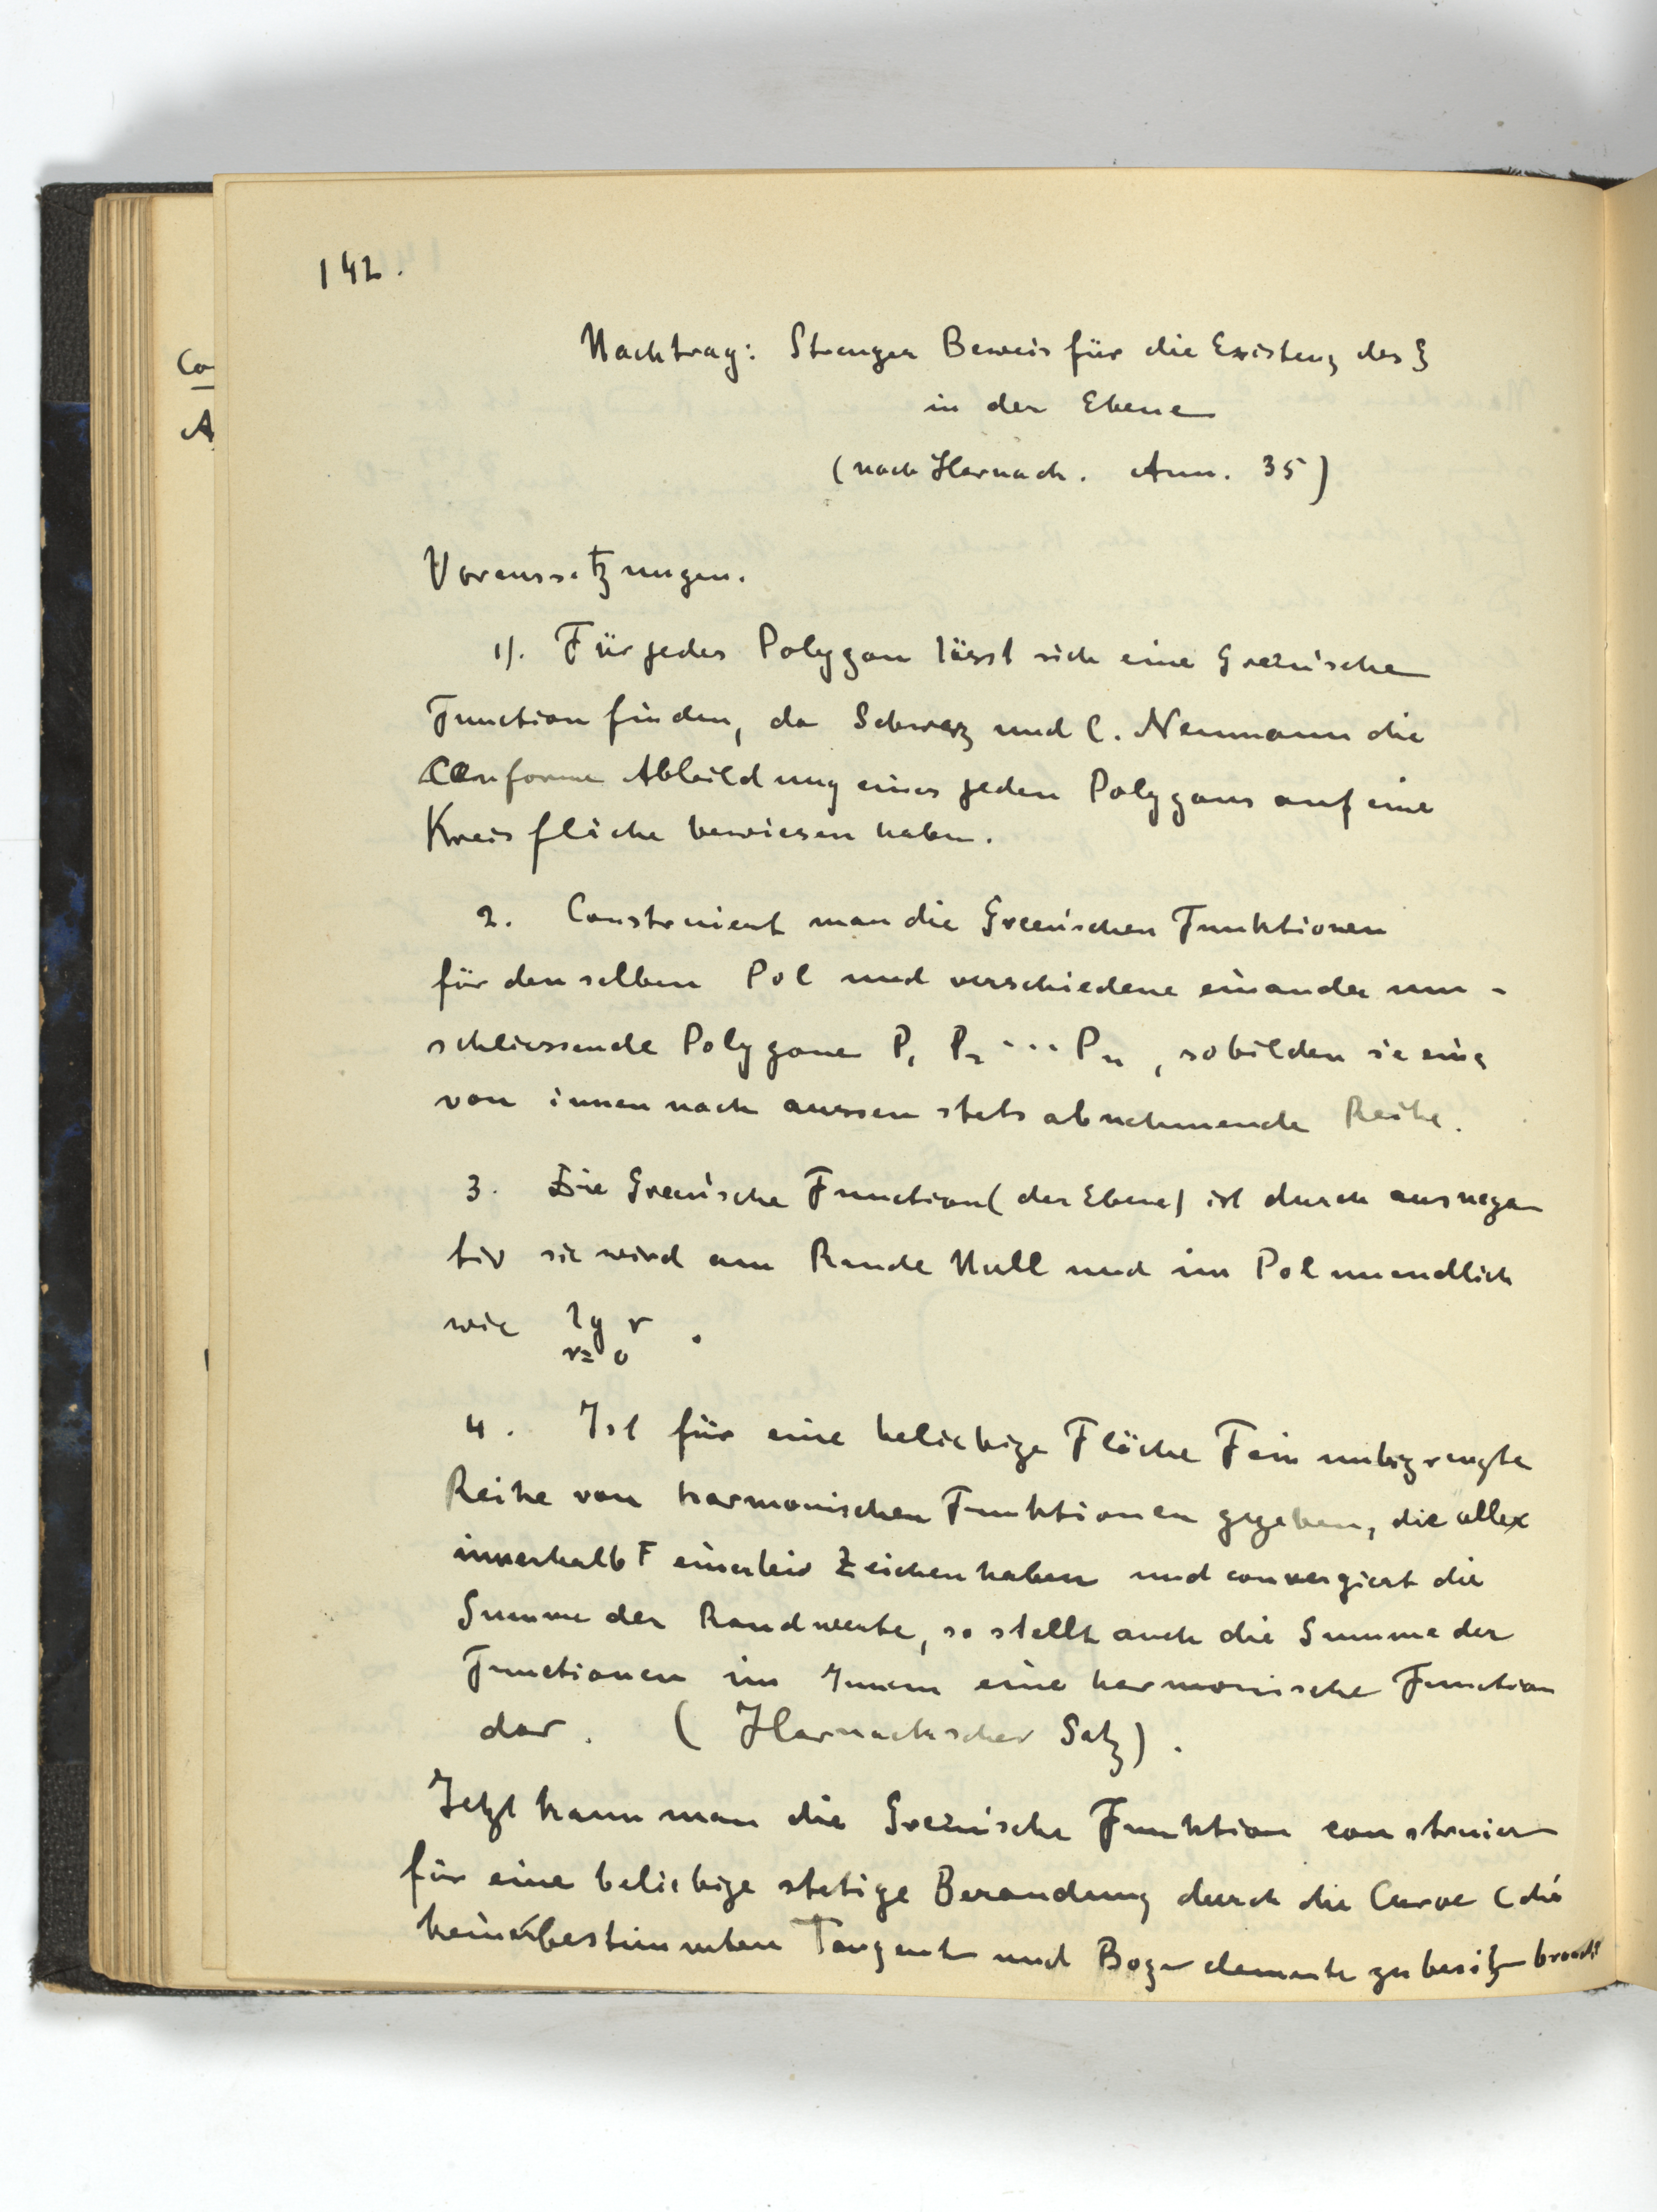 142.
Co
A
Nachtrag: Strenger Beweis für die Existenz des ξ
in der Ebene
(nach Harnack. Ann. 35)
Voraussetzungen.
1). Für jedes Polygon lässt sich eine Green'sche
Function finden, da Schwarz und C. Neumann die
Conforme Abbildung eines jeden Polygons auf eine
Kreisfläche bewiesen haben.
2. Construiert man die Green'schen Funktionen
für denselben Pol und verschiedene einander um-
schliessende Polygone P₁ P₂ ... Pₙ, so bilden sie eine
von innen nach aussen stets abnehmende Reihe.
3. Die Green'sche Function (der Ebene) ist durchaus nega
tiv sie wird am Rande Null und im Pol unendlich
wie lg r .
r=0
4. Ist für eine beliebige Fläche F ein unbegrenzte
Reihe von harmonischen Funktionen gegeben, die alle
innerhalb F einerlei Zeichen haben und convergiert die
Summe der Randwerte, so stellt auch die Summe der
Functionen im Innern eine harmonische Function
dar. (Harnackscher Satz).
Jetzt kann man die Green'sche Funktion construier
für eine beliebige stetige Berandung durch die Curve C die
keine bestimmten Tangent und Bogenelemente zu besitzen braucht